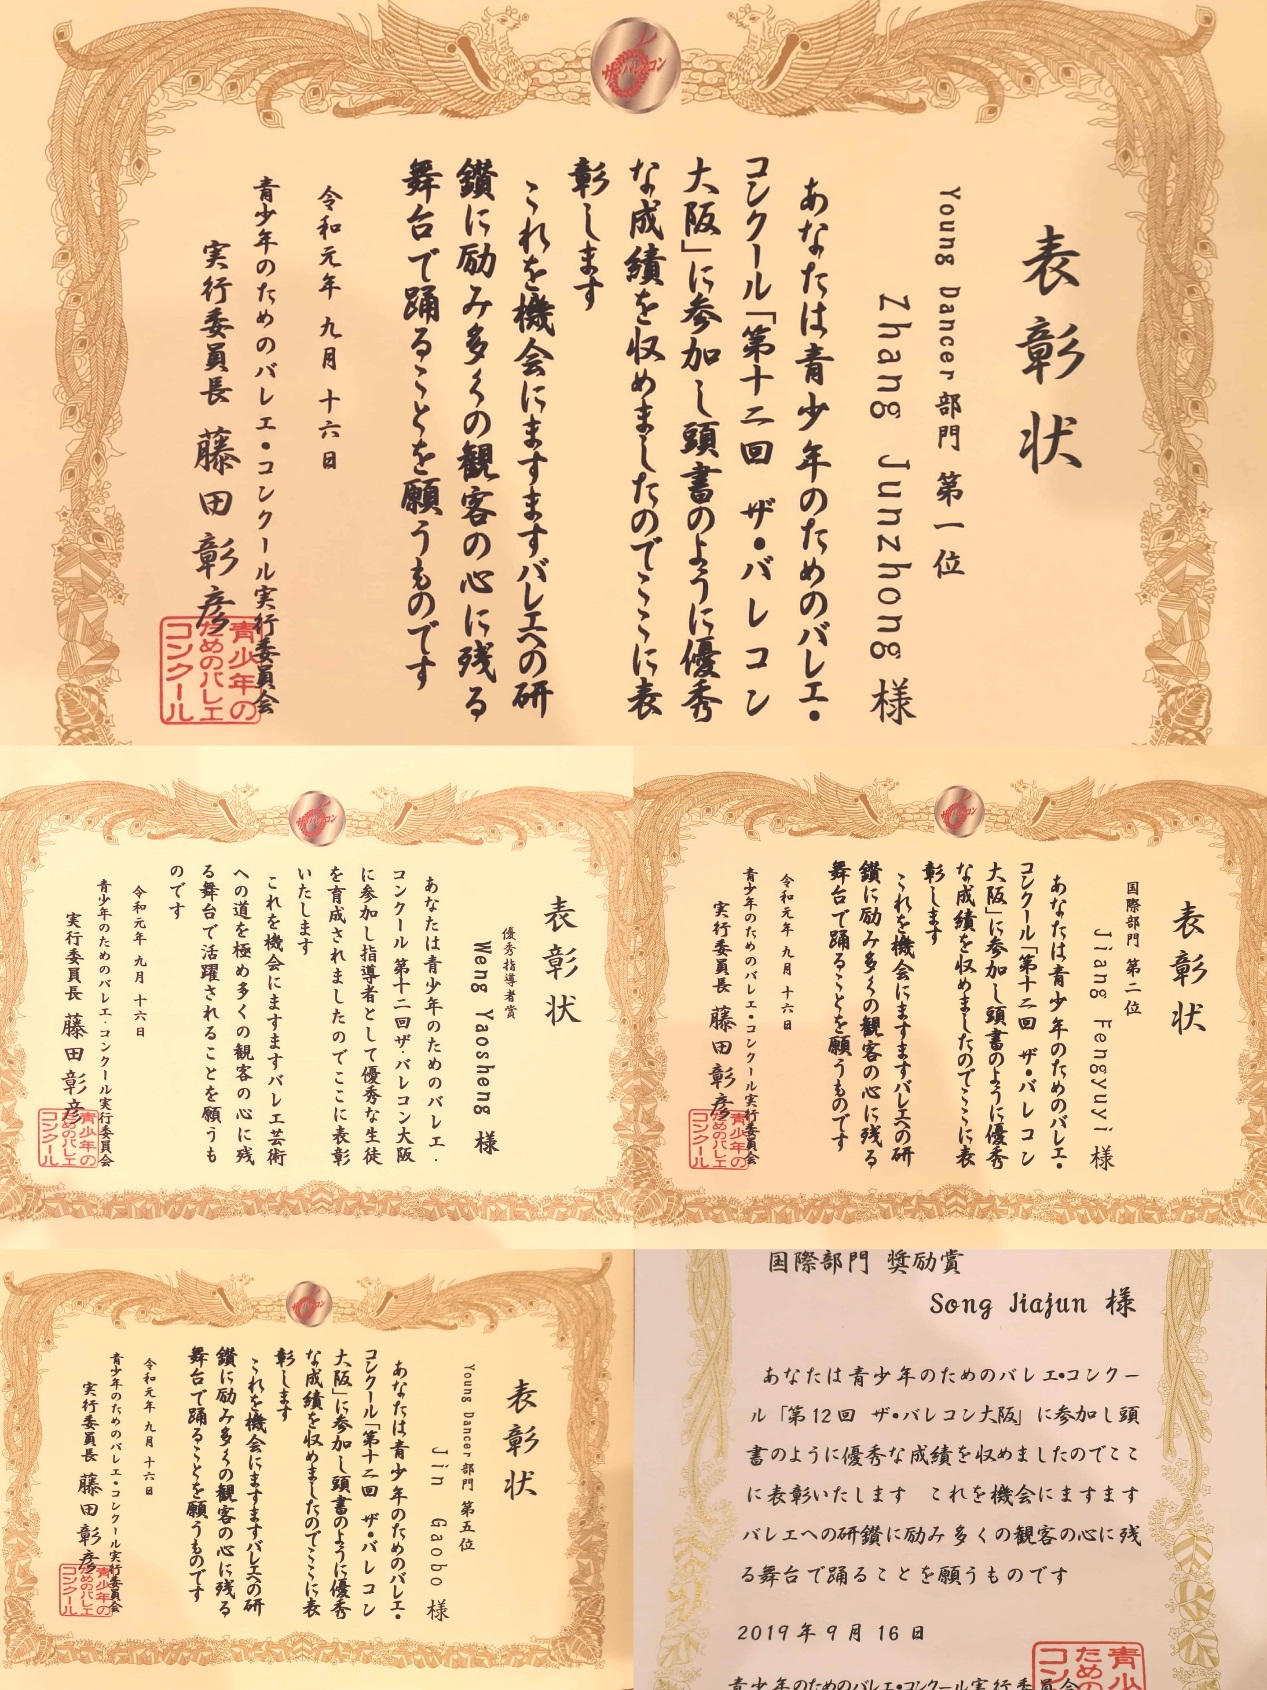 ザバレコン
表彰状
Young Dancer部門 第一位
Zhang Junzhong 様
あなたは青少年のためのバレエ・
コンクール「第十二回 ザ・バレコン
大阪」に参加し頭書のように優秀
な成績を収めましたのでここに表
彰します
これを機会にますますバレエへの研
鑽に励み多くの観客の心に残る
舞台で踊ることを願うものです
令和元年 九月 十六日
青少年のためのバレエ・コンクール実行委員会
実行委員長 藤田彰彦
青少年の
ためのバレエ
コンクール
ザバレコン
表彰状
優秀指導者賞
Weng Yaosheng 様
あなたは青少年のためのバレエ・
コンクール 第十二回ザ・バレコン大阪
に参加し指導者として優秀な生徒
を育成されましたのでここに表彰
いたします
これを機会にますますバレエ芸術
への道を極め多くの観客の心に残
る舞台で活躍されることを願うも
のです
令和元年 九月 十六日
青少年のためのバレエ・コンクール実行委員会
実行委員長 藤田彰彦
青少年の
ためのバレエ
コンクール
ザバレコン
表彰状
国際部門 第二位
Jiang Fengyuyi 様
あなたは青少年のためのバレエ・
コンクール「第十二回 ザ・バレコン
大阪」に参加し頭書のように優秀
な成績を収めましたのでここに表
彰します
これを機会にますますバレエへの研
鑽に励み多くの観客の心に残る
舞台で踊ることを願うものです
令和元年 九月 十六日
青少年のためのバレエ・コンクール実行委員会
実行委員長 藤田彰彦
青少年の
ためのバレエ
コンクール
ザバレコン
表彰状
Young Dancer部門 第五位
Jin Gaobo 様
あなたは青少年のためのバレエ・
コンクール「第十二回 ザ・バレコン
大阪」に参加し頭書のように優秀
な成績を収めましたのでここに表
彰します
これを機会にますますバレエへの研
鑽に励み多くの観客の心に残る
舞台で踊ることを願うものです
令和元年 九月 十六日
青少年のためのバレエ・コンクール実行委員会
実行委員長 藤田彰彦
青少年の
ためのバレエ
コンクール
国際部門 奨励賞
Song Jiajun 様
あなたは青少年のためのバレエ・コンクー
ル「第12回 ザ・バレコン大阪」に参加し頭
書のように優秀な成績を収めましたのでここ
に表彰いたします これを機会にますます
バレエへの研鑽に励み多くの観客の心に残
る舞台で踊ることを願うものです
2019年9月16日
青少年のためのバレエ・コンクール実行委員会
青少
ための
コン